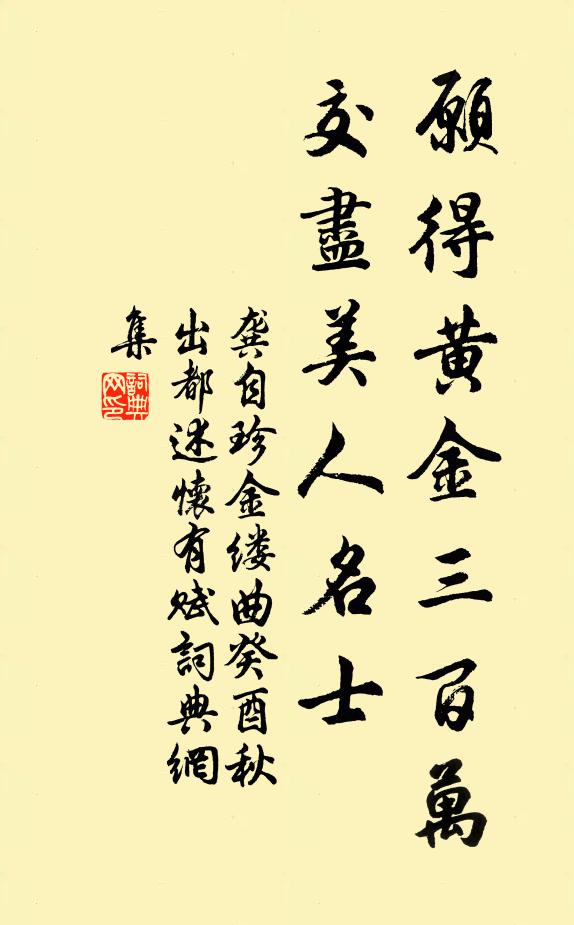 願得黄金三百萬
交盡美人名士
龔自珍金缕曲癸酉秋
出都述懷有赋詞典網
集
詞典
网印